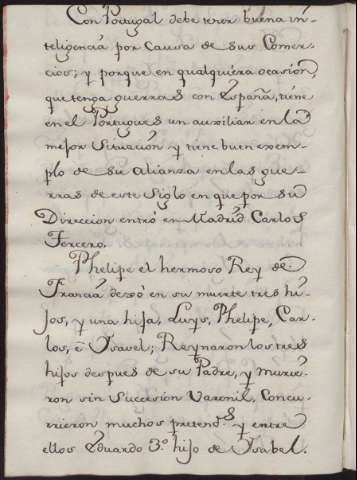 Con Portugal debe tener buena in-
teligencia por causa de sus Comer-
cios; y porque en qualquiera ocasion,
que tenga guerras con España, tiene
en el Portugues un auxiliar en la
mejor Situacion y tiene buen exem-
plo de su alianza en las gue-
rras de este Siglo en que por su
Direccion entró en Madrid Carlos
Tercero.
Phelipe el hermoso Rey de
Francia dexó en su muerte tres hi-
jos, y una hija, Luys, Phelipe, Car-
los, e Ysavel; Reynaron los tres
hijos despues de su Padre, y murie-
ron sin Succesion Varonil, Concu-
rrieron muchos pretend.s y entre
ellos Eduardo 3.o hijo de Ysabel.